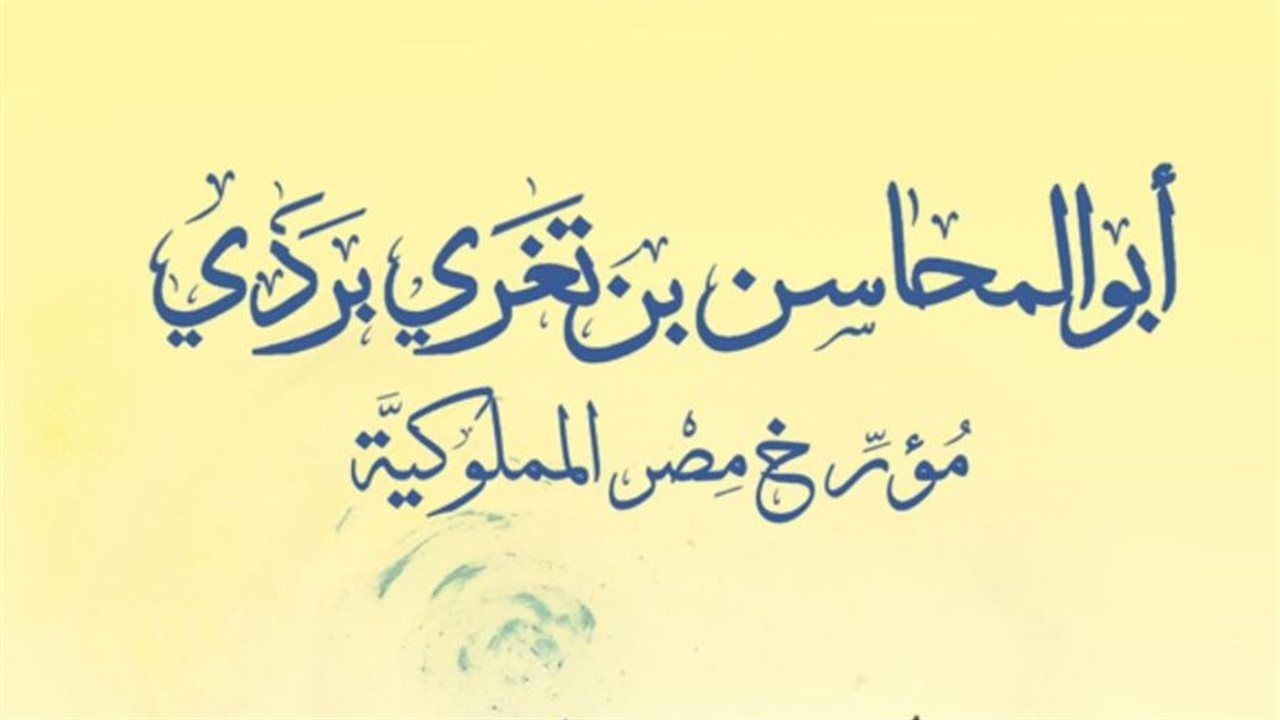 أبو المحاسن بن تغَري بَرَدي
مُؤرِّخ مِصْر المملوكيَّة